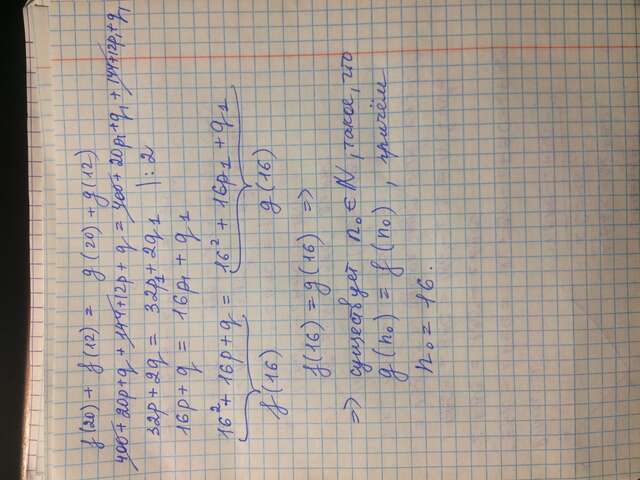 f(20) + f(12) = g(20) + g(12)
400 + 20p + q + 144 + 12p + q = 400 + 20p₁ + q₁ + 144 + 12p₁ + q₁
32p + 2q = 32p₁ + 2q₁ |: 2
16p + q = 16p₁ + q₁
16² + 16p + q = 16² + 16p₁ + q₁
f(16) g(16)
f(16) = g(16) =>
=> существует n₀ ∈ N, такое, что
g(n₀) = f(n₀), причём
n₀ = 16.